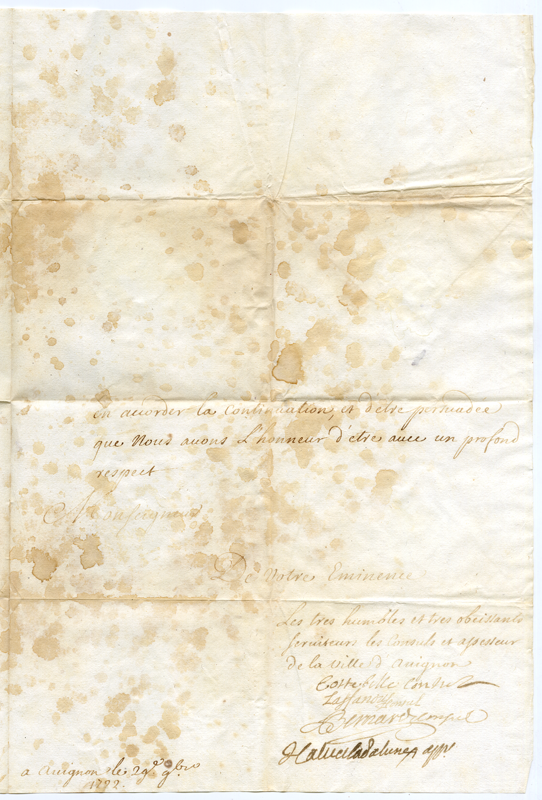 en accorder la Continuation et d'etre persuadée
que Nous auons L'honneur d'etre auec un profond
respect
Monseigneur
De Votre Eminence
Les tres humbles et tres obeissants
seruiteurs les Consuls et assesseur
de la ville d'auignon
Consul
Consul
Bernard Consul
a auignon le 29e 9bre
1722